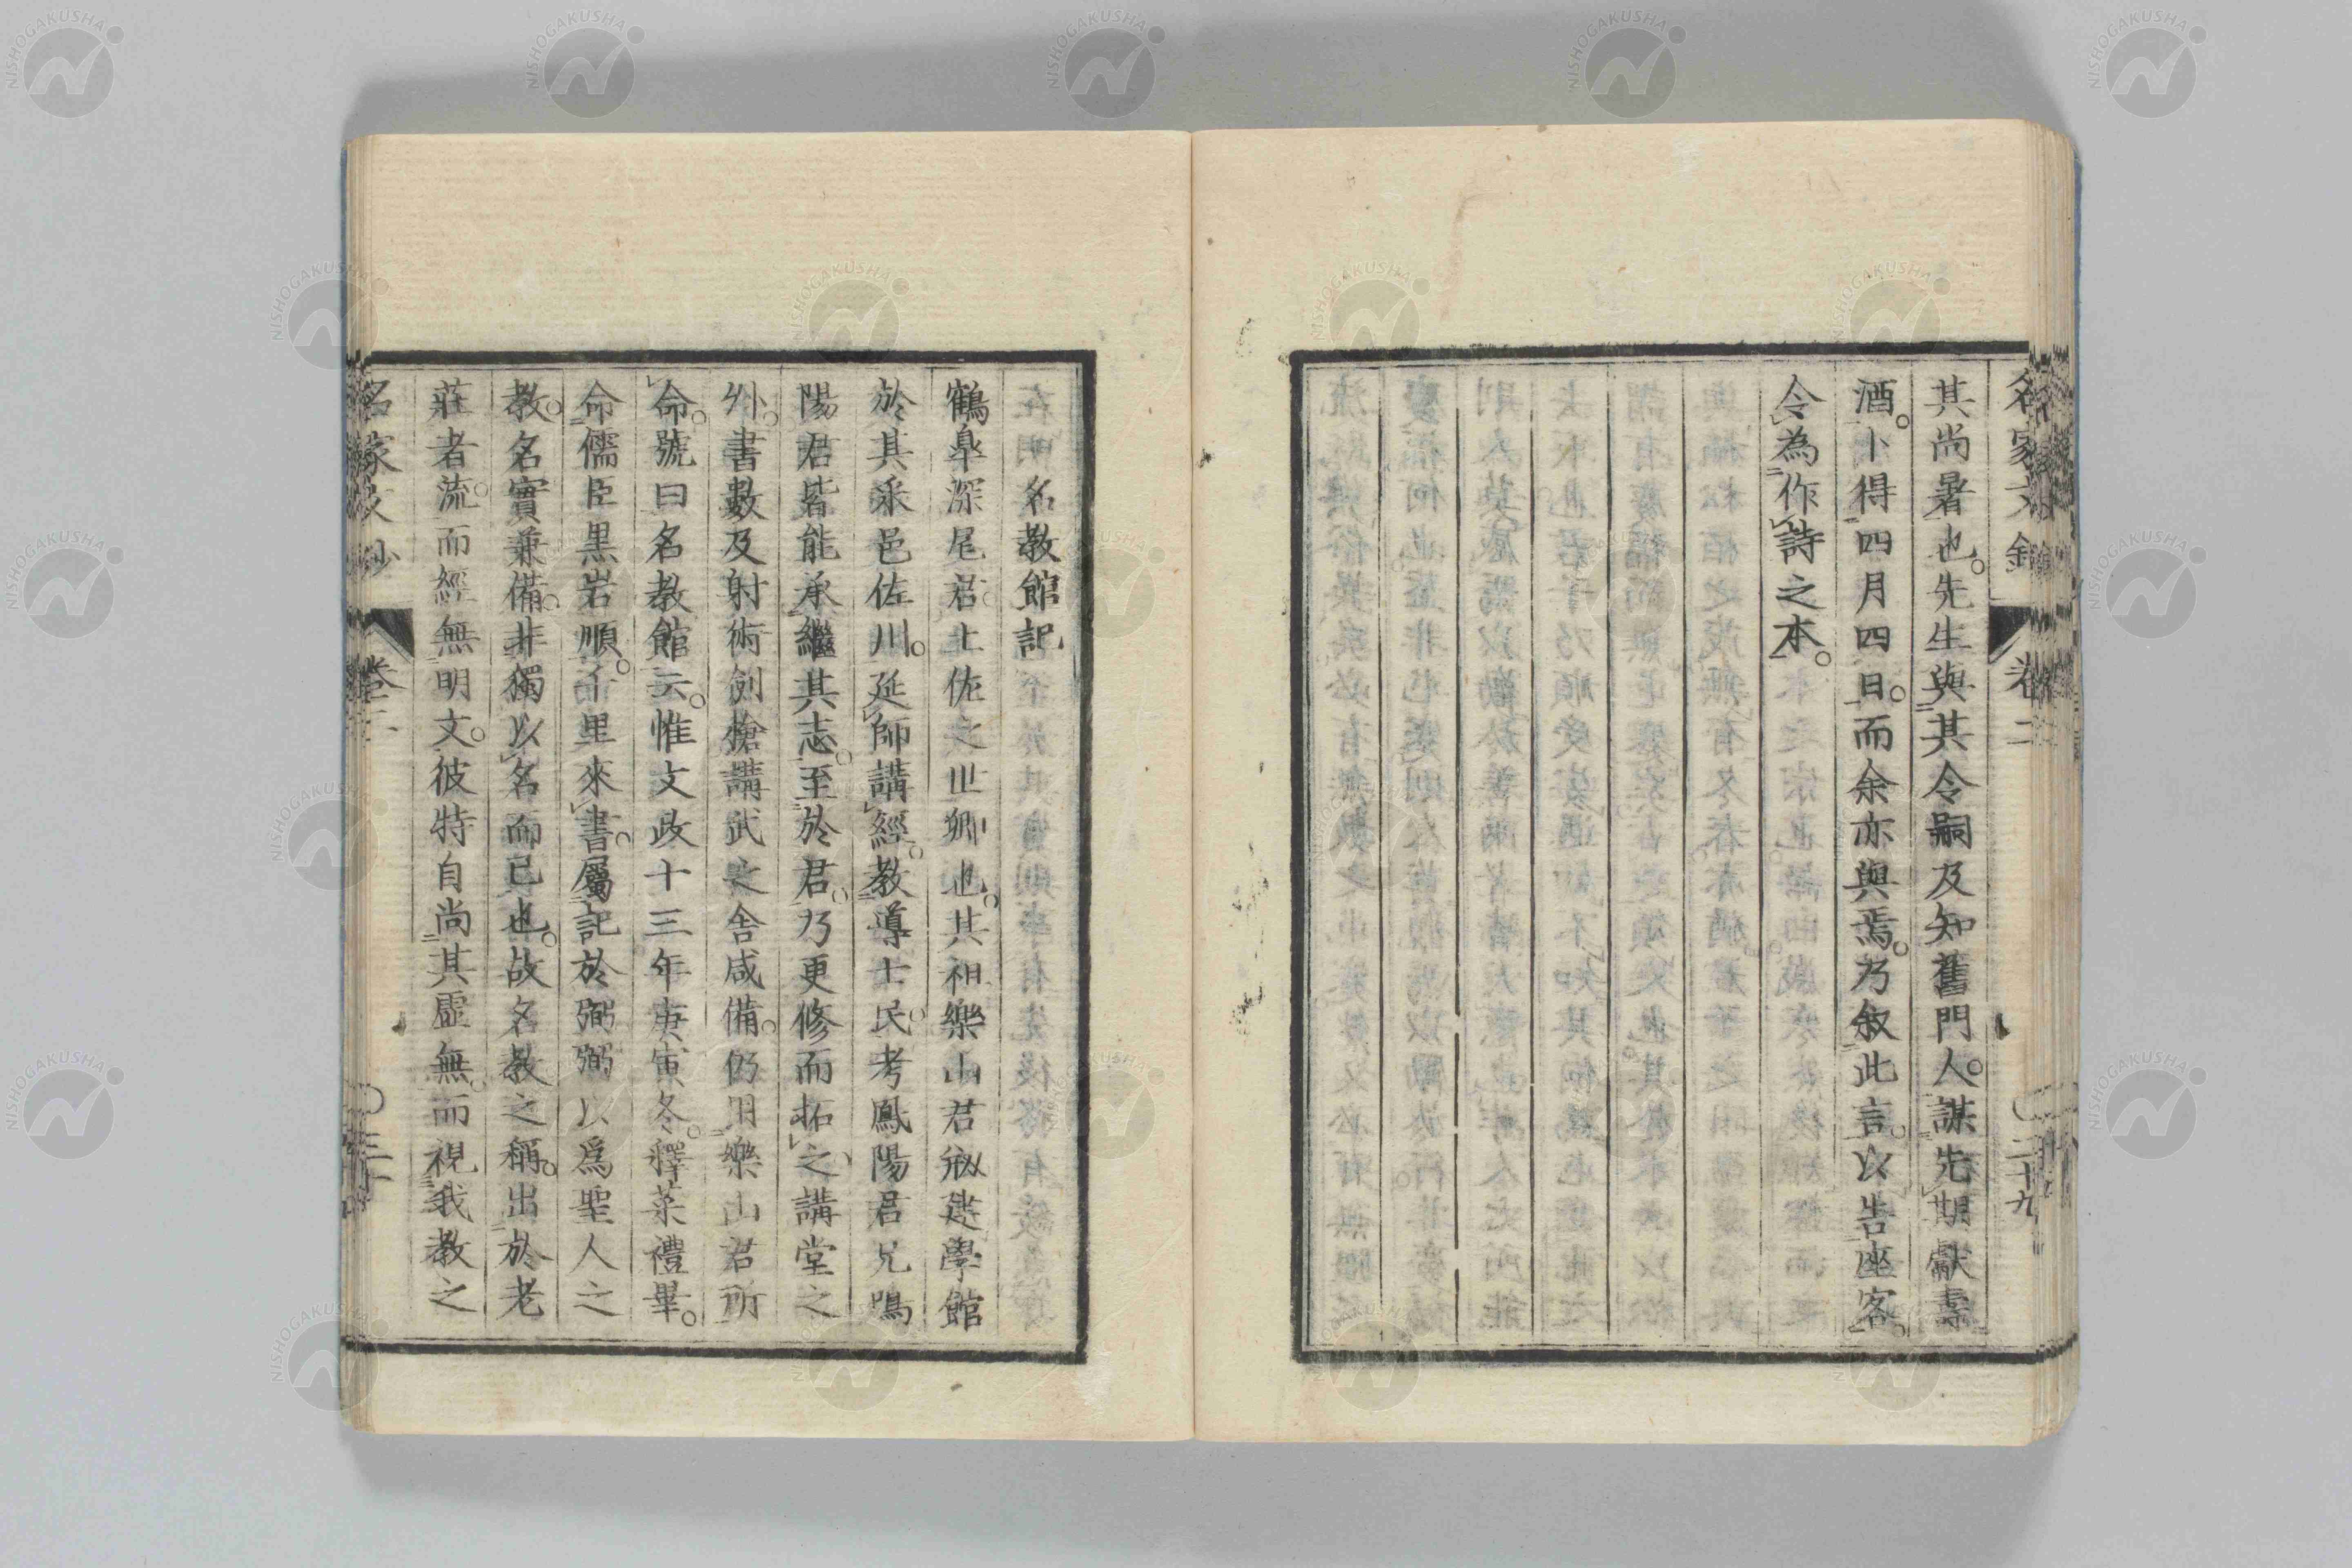 名家文鈔 卷二 二十九
其尚暑也。先生與其令嗣及知舊門人。謀先期獻壽
酒。卜得四月四日。而余亦與焉。乃敘此言。以告座客。
令為作詩之本。
名教館記
鶴皐深尾君。土佐之世卿也。其祖樂山君剏建學館
於其采邑佐川。延師講經。教導士民。考鳳陽君兄鳴
陽君皆能承繼其志。至於君。乃更修而拓之。講堂之
外。書數及射術劍槍講武之舍咸備。仍用樂山君所
命。號曰名教館云。惟文政十三年庚寅冬。釋菜禮畢。
命儒臣黒岩順。千里來書。屬記於弼。弼以爲聖人之
教。名實兼備。非獨以名而已也。故名教之稱。出於老
莊者流。而經無明文。彼特自尚其虛無。而視我教之
名家文鈔 卷二 三十
NISHOGAKUSHA